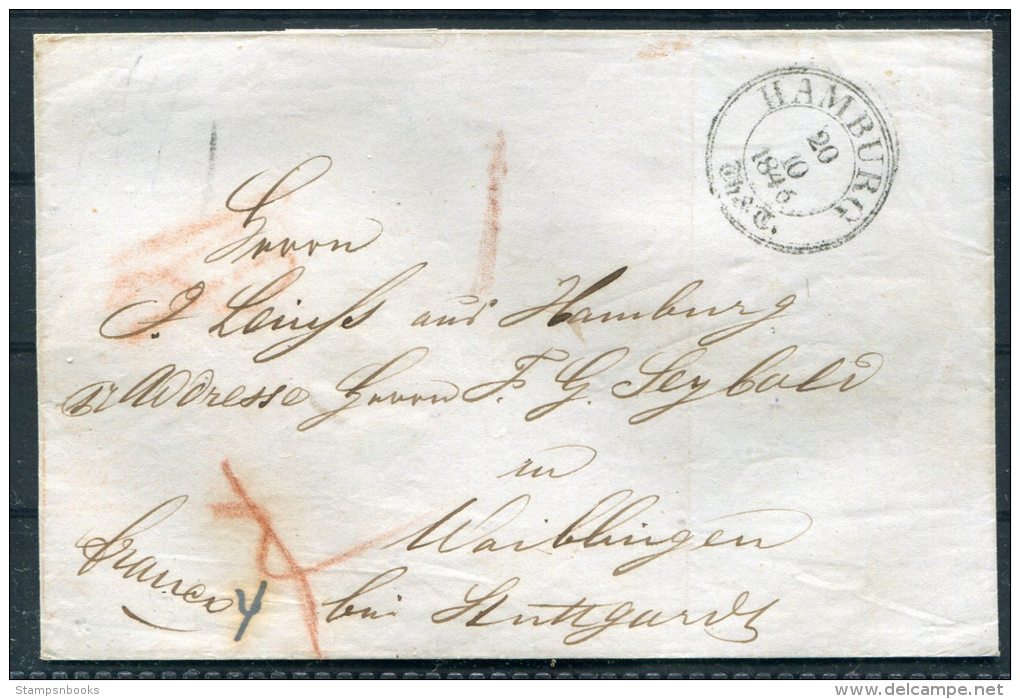 HAMBURG
20
10
1846
Herrn
J. aus Hamburg
Adresse Herrn F. G. Seybold
in
Waiblingen
franco 4 bei Stuttgardt
Stampsnbooks
delcampe.net